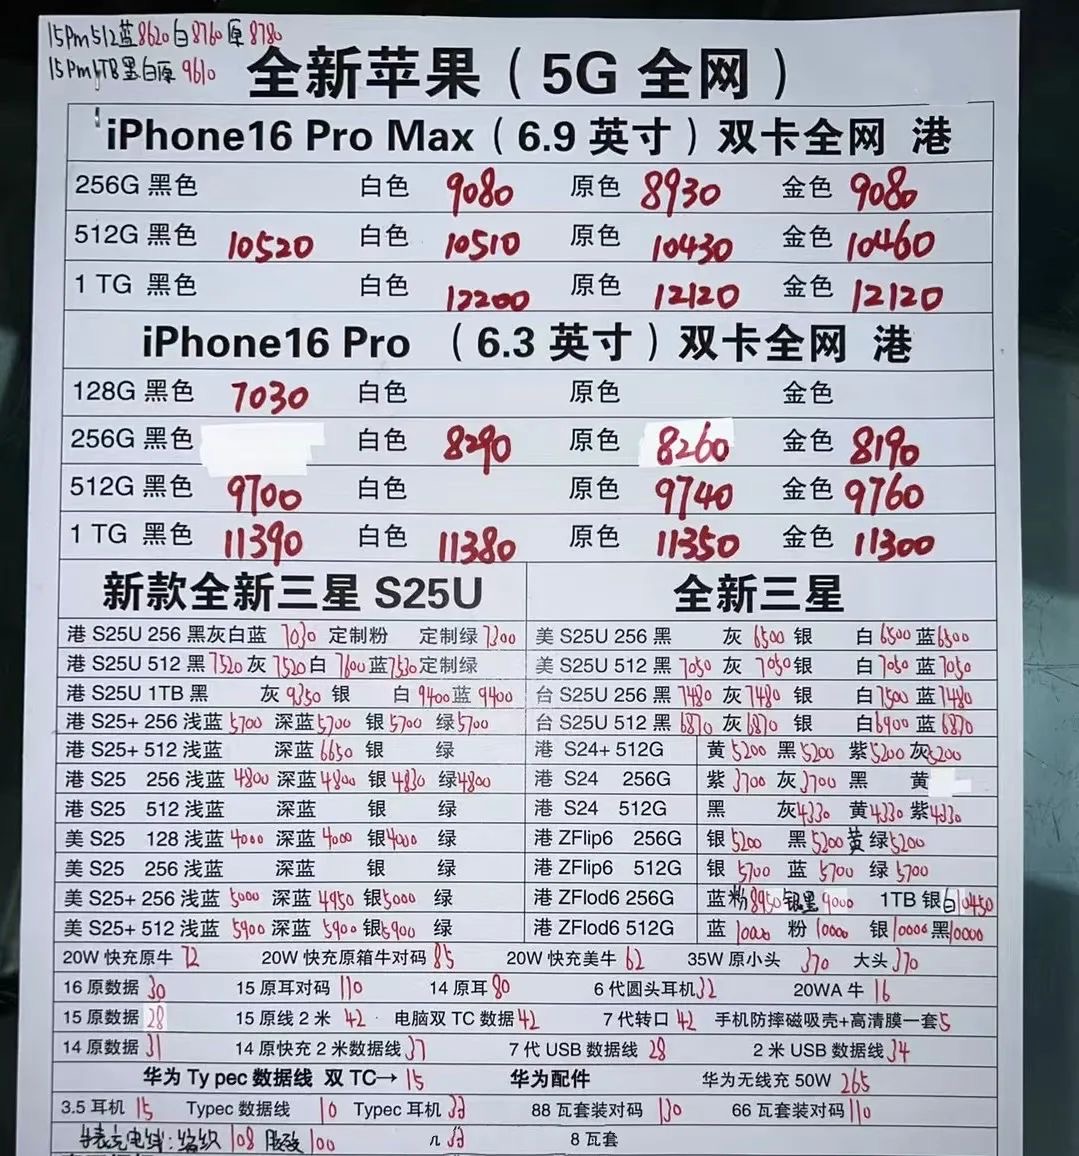 15Pm512蓝8620白8760原8780
15Pm1TB黑白原 9610
全新苹果（5G 全网）
iPhone16 Pro Max（6.9 英寸）双卡全网 港
256G 黑色 白色 9080 原色 8930 金色 9080
512G 黑色 10520 白色 10510 原色 10430 金色 10460
1 TG 黑色 白色 12200 原色 12120 金色 12120
iPhone16 Pro （6.3 英寸）双卡全网 港
128G 黑色 7030 白色 原色 金色
256G 黑色 白色 8290 原色 8260 金色 8190
512G 黑色 9700 白色 原色 9740 金色 9760
1 TG 黑色 11390 白色 11380 原色 11350 金色 11300
新款全新三星 S25U
港 S25U 256 黑灰白蓝 7030 定制粉 定制绿 7300
港 S25U 512 黑 7520 灰 7520 白 7600 蓝 7530 定制绿
港 S25U 1TB 黑 灰 9350 银 白 9400 蓝 9400
港 S25+ 256 浅蓝 5700 深蓝 5700 银 5700 绿 5700
港 S25+ 512 浅蓝 深蓝 6650 银 绿
港 S25 256 浅蓝 4800 深蓝 4800 银 4830 绿 4800
港 S25 512 浅蓝 深蓝 银 绿
美 S25 128 浅蓝 4000 深蓝 4000 银 4000 绿
美 S25 256 浅蓝 深蓝 银 绿
美 S25+ 256 浅蓝 5000 深蓝 4950 银 5000 绿
美 S25+ 512 浅蓝 5900 深蓝 5900 银 5900 绿
全新三星
美 S25U 256 黑 灰 6500 银 白 6500 蓝 6500
美 S25U 512 黑 7050 灰 7050 银 白 7050 蓝 7050
台 S25U 256 黑 7480 灰 7480 银 白 7500 蓝 7480
台 S25U 512 黑 6870 灰 6870 银 白 6900 蓝 6870
港 S24+ 512G 黄 5200 黑 5200 紫 5200 灰 5200
港 S24 256G 紫 3700 灰 3700 黑 黄
港 S24 512G 黑 灰 4330 黄 4330 紫 4330
港 ZFlip6 256G 银 5200 黑 5200 黄 绿 5200
港 ZFlip6 512G 银 5700 蓝 5700 绿 5700
港 ZFlod6 256G 蓝 粉 8950 银黑 9000 1TB 银 白 10450
港 ZFlod6 512G 蓝 10000 粉 10000 银 10000 黑 10000
20W 快充原牛 72 20W 快充原箱牛对码 85 20W 快充美牛 62 35W 原小头 370 大头 370
16 原数据 30 15 原耳对码 110 14 原耳 80 6 代圆头耳机 32 20WA 牛 16
15 原数据 28 15 原线 2 米 42 电脑双 TC 数据 42 7 代转口 42 手机防摔磁吸壳+高清膜一套 5
14 原数据 31 14 原快充 2 米数据线 37 7 代 USB 数据线 28 2 米 USB 数据线 34
华为 Ty pec 数据线 双 TC→ 15 华为配件 华为无线充 50W 265
3.5 耳机 15 Typec 数据线 10 Typec 耳机 33 88 瓦套装对码 130 66 瓦套装对码 110
手表充电线：编织 108 100 8 瓦套